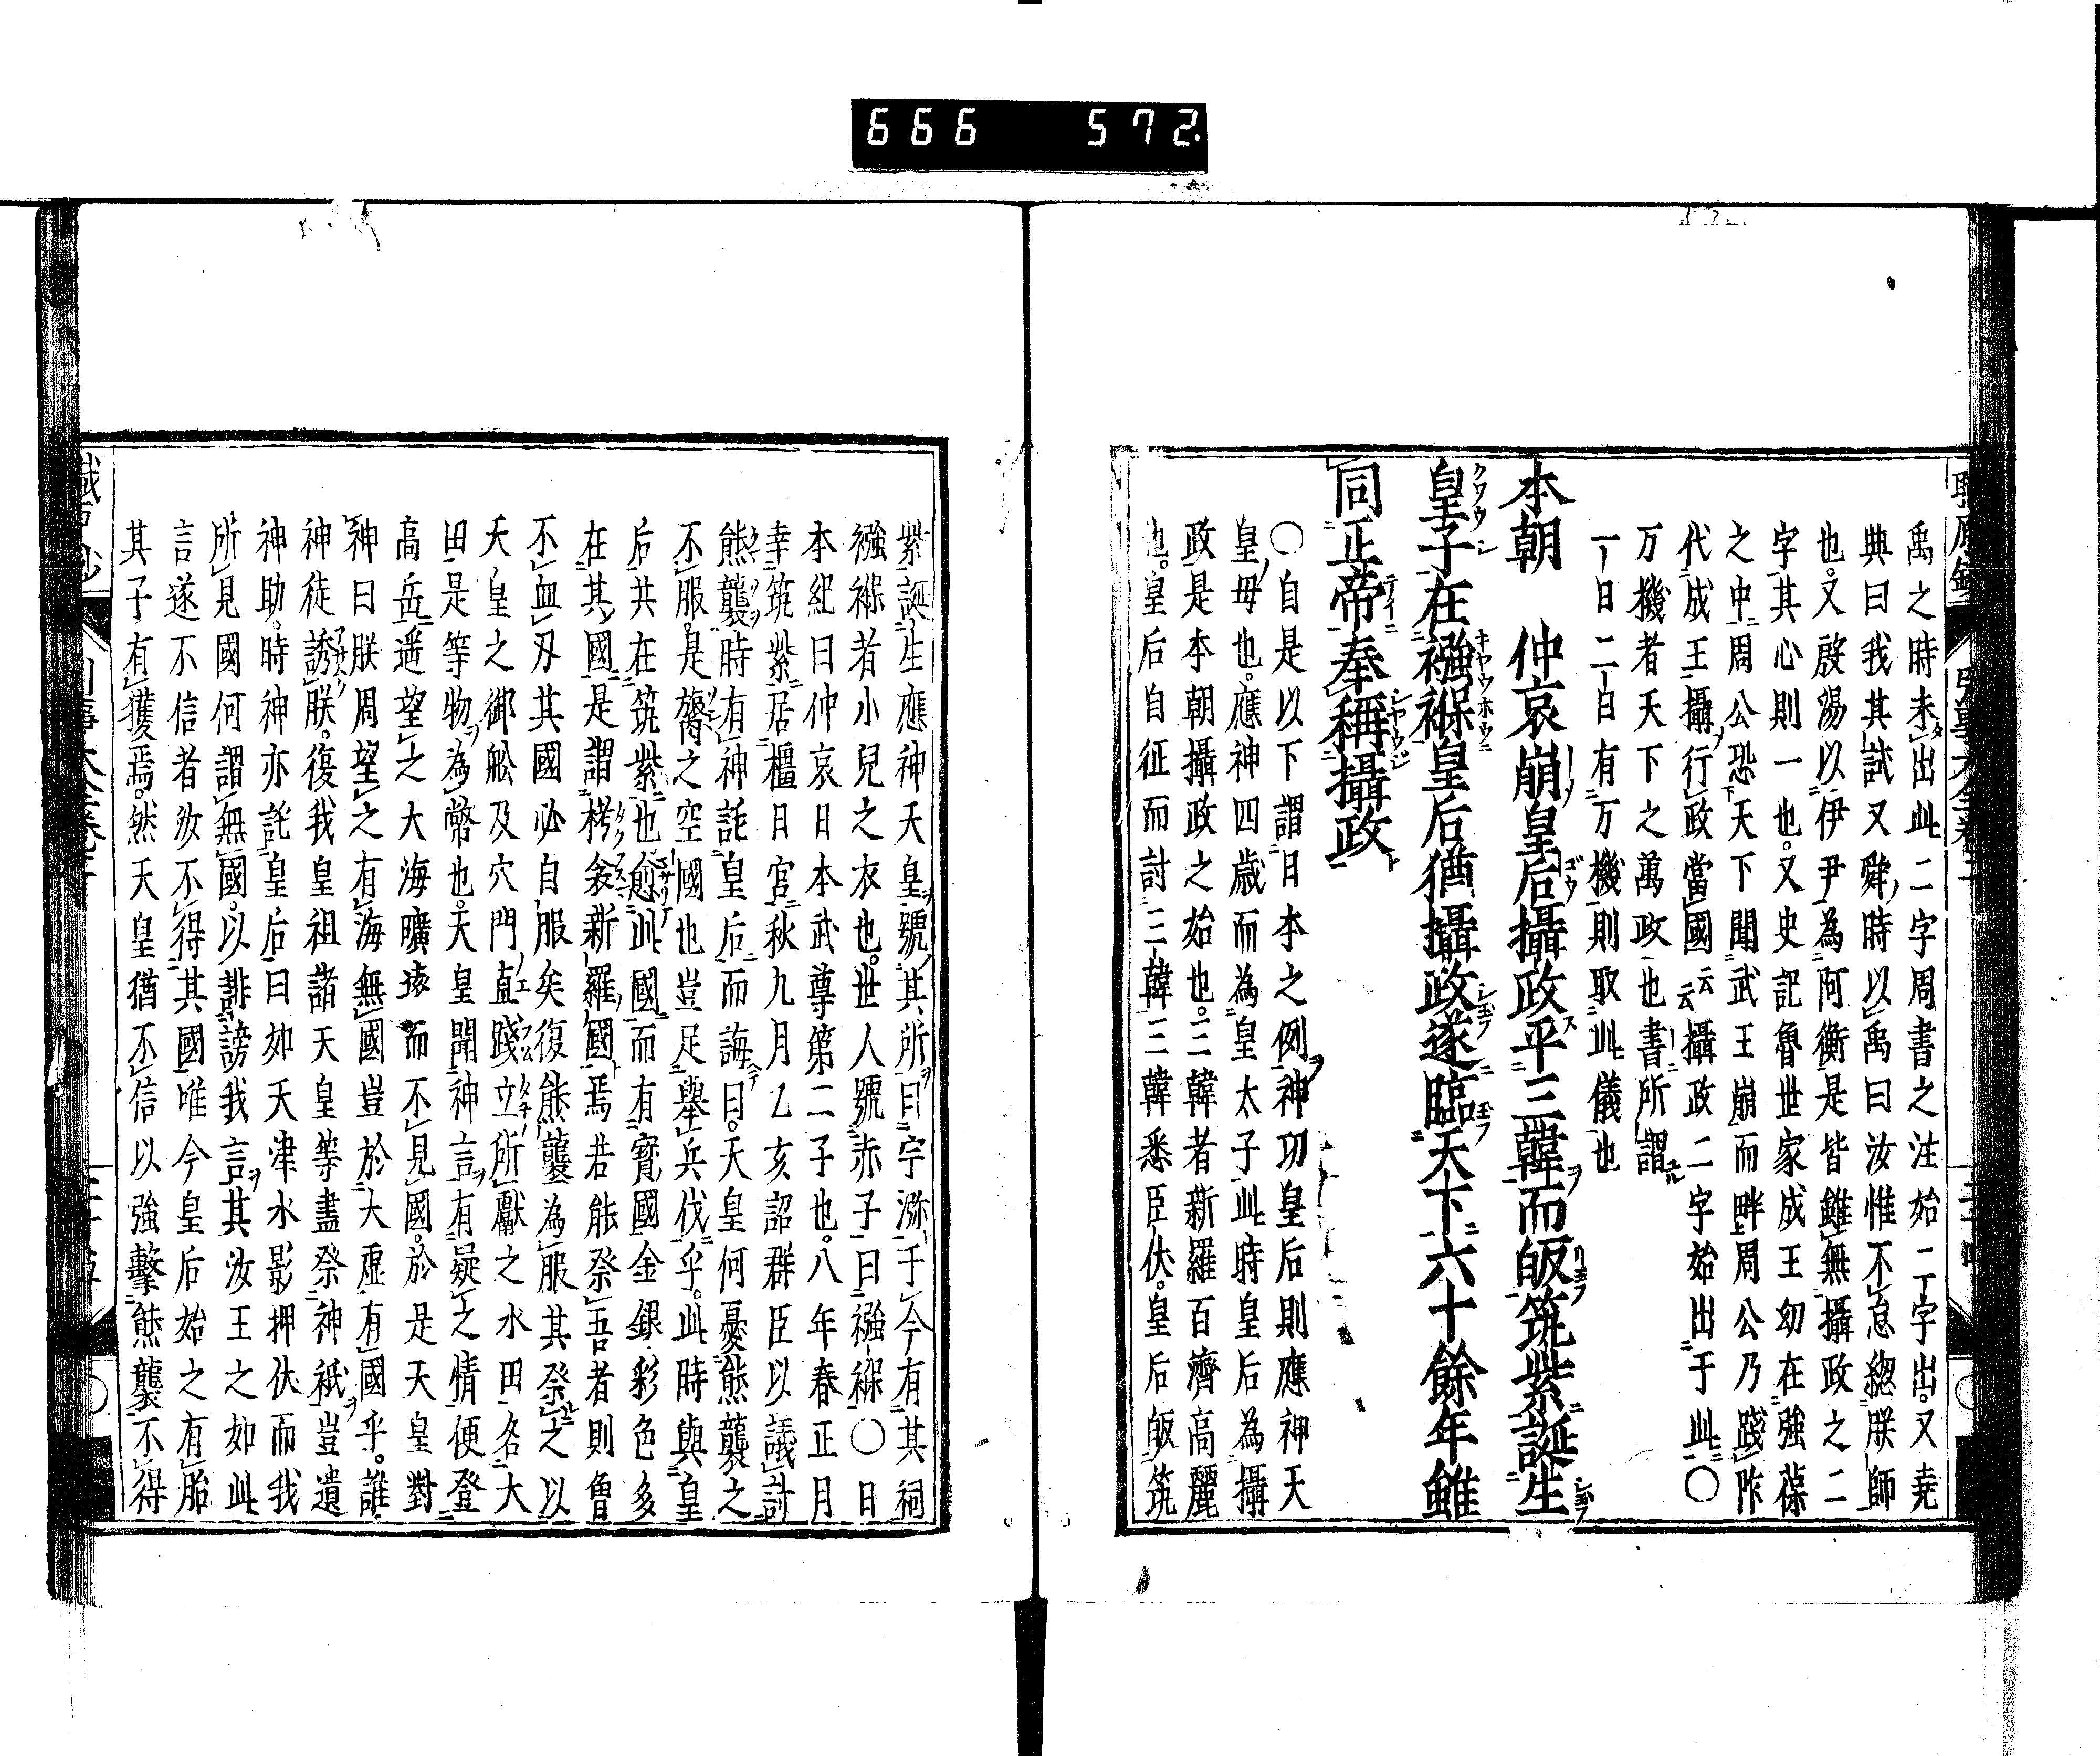 666 572.
禹之時未出此二字周書之注始一丁字出又堯
典曰我其試又舜時以禹曰汝惟不怠總朕師
也又殷湯以伊尹為阿衡是皆雖無攝政之二
字其心則一也又史記魯世家成王幼在強葆
之中周公恐天下聞武王崩而畔周公乃踐阼
代成王攝行政當國云云攝政二字始出于此○
万機者天下之萬政也書所謂
一日二日有万機則取此儀也
本朝　仲哀崩皇后攝政平三韓而皈筑紫誕生
皇子在襁褓皇后猶攝政遂臨天下六十餘年雖
同正帝奉稱攝政
○自是以下謂日本之例神功皇后則應神天
皇母也應神四歳而為皇太子此時皇后為攝
政是本朝攝政之始也三韓者新羅百濟高麗
也皇后自征而討三韓三韓悉臣伏皇后皈筑
紫誕生應神天皇號其所曰宇瀰于今有其祠
襁褓者小兒之衣也世人號赤子曰襁褓○日
本紀曰仲哀日本武尊第二子也八年春正月
幸筑紫居橿日宮秋九月乙亥詔群臣以議討
熊襲時有神託皇后而誨曰天皇何憂熊襲之
不服是膂之空國也豈足舉兵伐乎此時與皇
后共在筑紫也愈此國而有寳國金銀彩色多
在其國是謂栲衾新羅國焉若能祭吾者則曾
不血刃其國必自服矣復熊襲為服其祭之以
天皇之御舩及穴門直踐立所獻之水田名大
田是等物為幣也天皇聞神言有疑之情便登
高岳遥望之大海曠遠而不見國於是天皇對
神曰朕周望之有海無國豈於大虚有國乎誰
神徒誘朕復我皇祖諸天皇等盡祭神祇豈遺
神助時神亦託皇后曰如天津水影押伏而我
所見國何謂無國以誹謗我言其汝王之如此
言遂不信者汝不得其國唯今皇后始之有胎
其子有獲焉然天皇猶不信以強擊熊襲不得